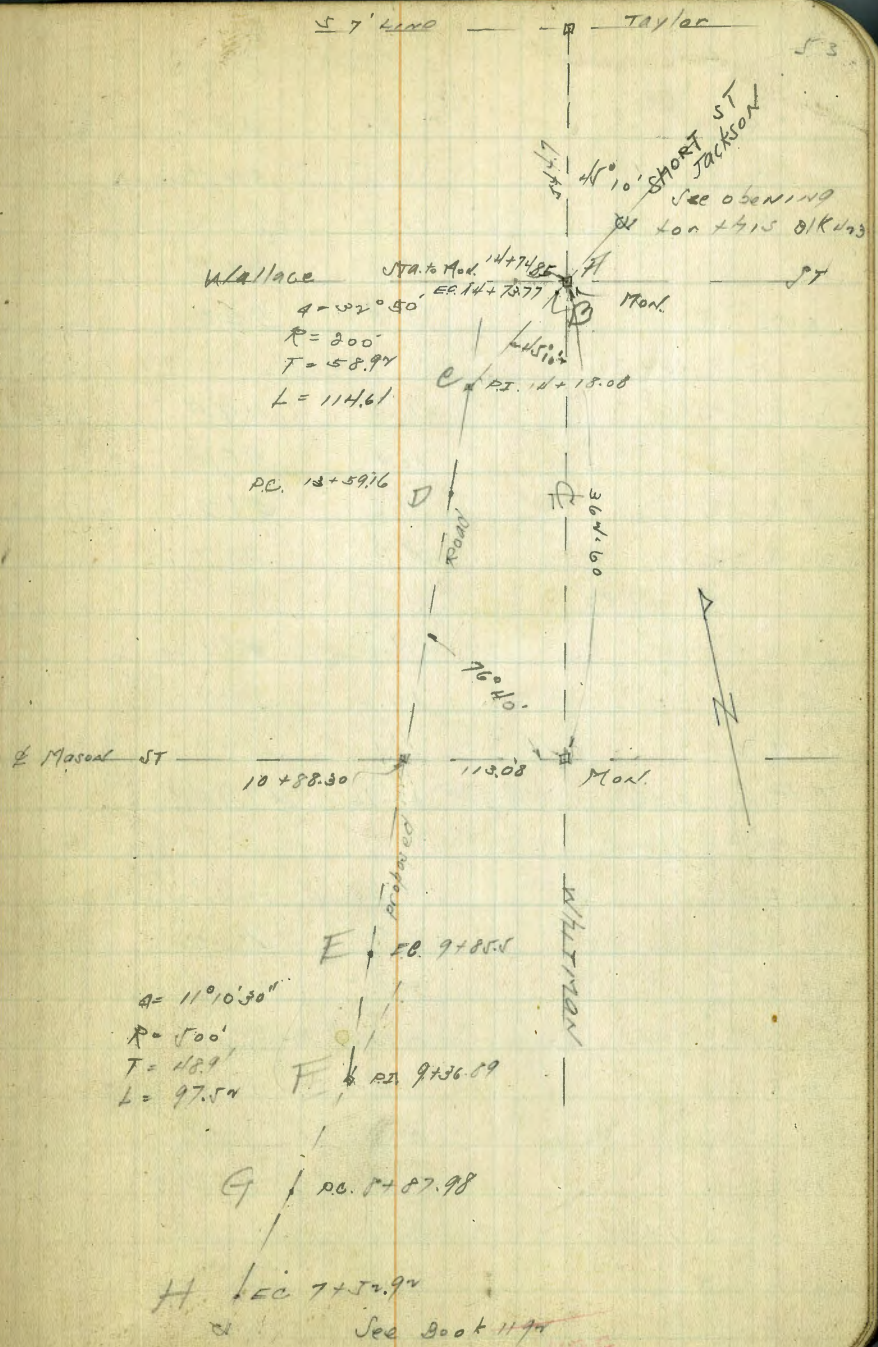 S 7' LINE Taylor
53
SHORT ST
JACKSON
45° 10'
See opening
for this Blk 473
Wallace ST
STA. to Mon. 14+74.85 A
E.C. 14+73.77 B MON.
Δ = 32° 50'
R = 200'
T = 58.92
L = 114.61
45°10'
C P.I. 14+18.08
P.C. 13+59.16 D
ROAD
362.60
76° 40'
N
¢ MASON ST
10+88.30 113.08 MON.
proposed
WHITMAN
E E.C. 9+85.5
Δ = 11°10'30"
R = 500'
T = 48.91
L = 97.52
F P.I. 9+36.89
G P.C. 8+87.98
H E.C. 7+52.92
See Book 1192